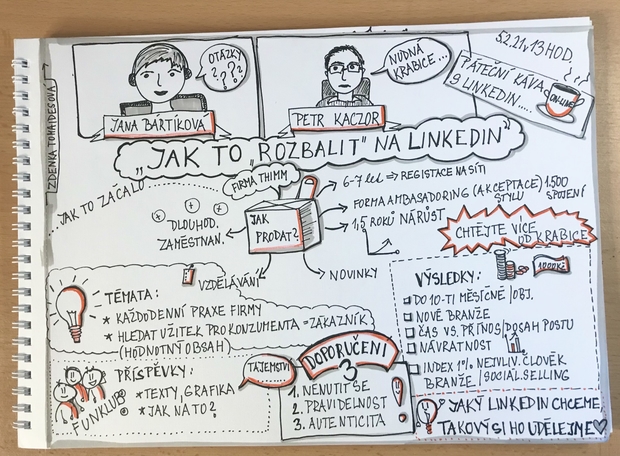 ZDENKA TOMAIDESOVÁ
OTÁZKY
? ? ? ?
NUDNÁ
KRABICE...
5.2.21 v 13 HOD.
PÁTEČNÍ KÁVA
S LINKEDIN....
ON-LINE
JANA BÁRTÍKOVÁ
PETR KACZOR
„JAK TO „ROZBALIT" NA LINKEDIN"
FIRMA THIMM
...JAK TO ZAČALO
6-7 let ⇒ REGISTACE NA SÍTI
FORMA AMBASADORING (AKCEPTACE) 1.500
STYLU SPOJENÍ
1,5 ROKU NÁRŮST
DLOUHOD.
ZAMĚSTNAN.
JAK
PRODAT?
CHTĚJTE VÍCE
OD KRABICE
VZDĚLÁVÁNÍ
NOVINKY
TÉMATA:
* KAŽDODENNÍ PRAXE FIRMY
* HLEDAT UŽITEK PRO KONZUMENTA = ZÁKAZNÍK
(HODNOTNÝ OBSAH)
PŘÍSPĚVKY:
* TEXTY, GRAFIKA
* JAK NA TO?
FUNKLUB
TAJEMSTVÍ
DOPORUČENÍ
3
1. NENUTIT SE
2. PRAVIDELNOST
3. AUTENTICITA
VÝSLEDKY:
1000Kč
DO 10-TI MĚSÍČNĚ OBJ.
NOVÉ BRANŽE
ČAS VS. PŘÍNOS DOSAH POSTU
NÁVRATNOST
INDEX 1% NEJVLIV. ČLOVĚK
BRANŽE SOCIAL SELLING
JAKÝ LINKEDIN CHCEME,
TAKOVÝ SI HO UDĚLEJME